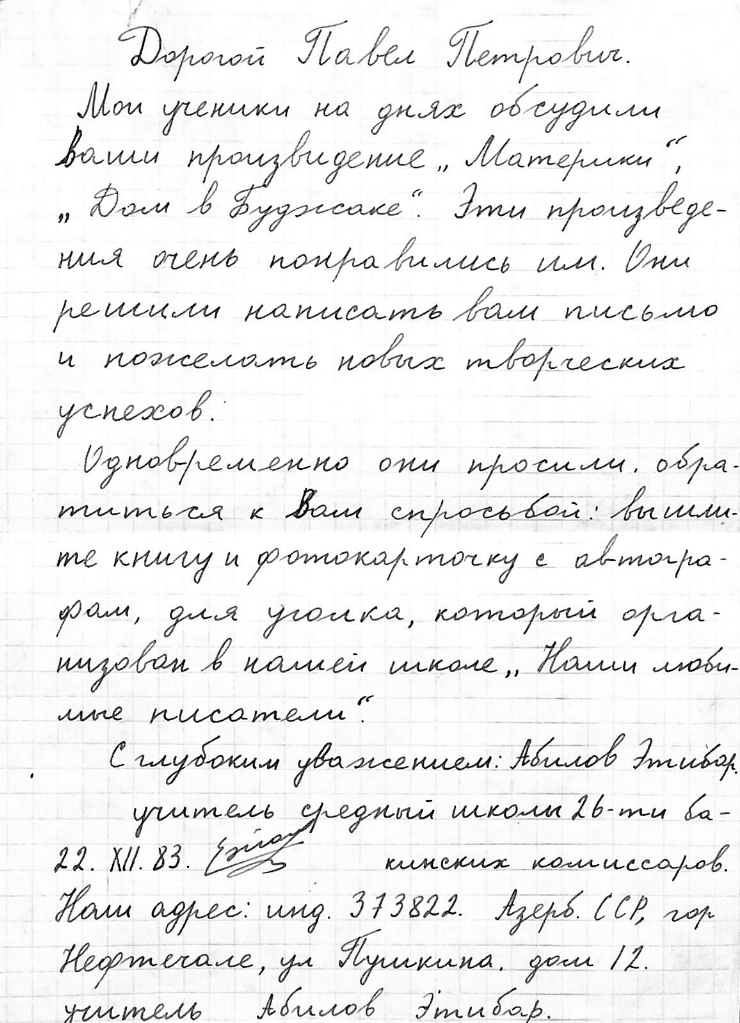 Дорогой Павел Петрович.
Мои ученики на днях обсудили
ваши произвидение „Материки“,
„Дом в Буджаке“. Эти произведе-
ния очень понравились им. Они
решили написать вам письмо
и пожелать новых творческих
успехов.
Одновременно они просили. обра-
титься к Вам спросьбой: вышли-
те книгу и фотокарточку с автогра-
фам, для уголка, который орга-
низован в нашей школе „Наши люби-
мые писатели“.
С глубоким уважением: Абилов Этибар.
учитель средный школы 26-ти ба-
22. XII. 83. кинских комиссаров.
Наш адрес: инд. 373822. Азерб. ССР, гор
Нефтечале, ул Пушкина. дом 12.
учитель Абилов Этибар.